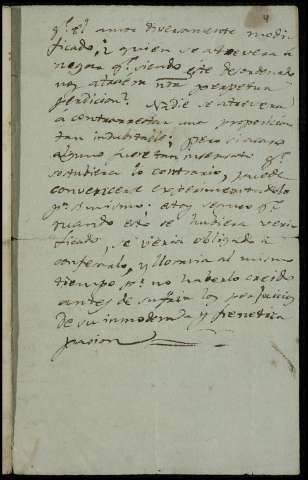 q.e el amor diversamente modi-
ficado, y quien se atrevera a
negar q.e siendo este desordenado
nos atraera nra perpetua
perdicion? Nadie se atrevera
a contrarrestar una proposicion
tan indubitable; pero si acaso
alguno fuese tan insensato q.e
sostubiera lo contrario, puede
convencerse experimentandolo
p.r si mismo: estoy seguro q.e
cuando esto se hubiera veri-
ficado, se veria obligado a
confesarlo, y lloraria al mismo
tiempo p.r no haberlo creido
antes de sufrir los perjuicios
de su inmoderada y frenetica
pasion